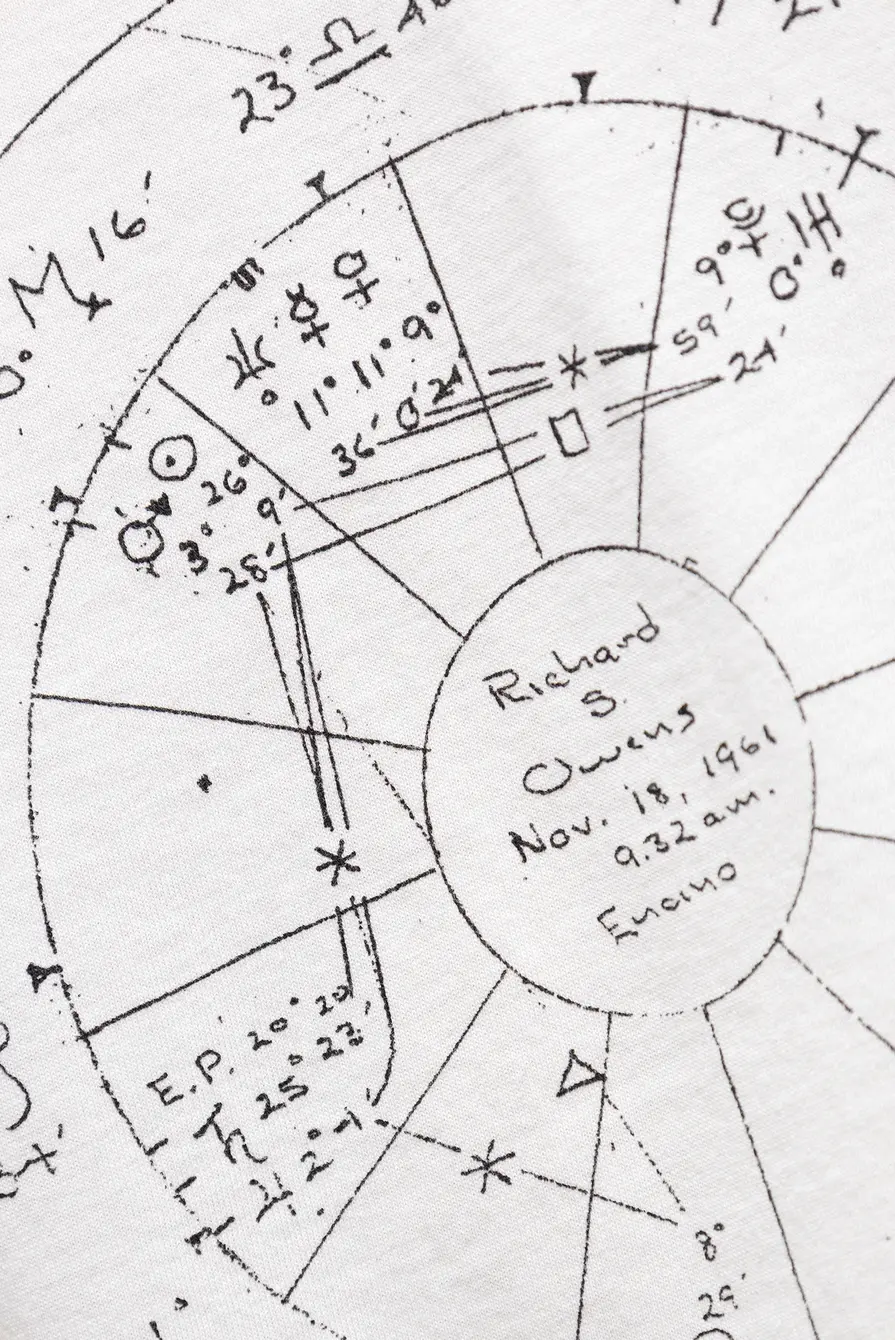 23° ♌
♏ 16'
♆ ☿ ♀
11° 11° 9°
36' 0' 24'
9° 0°
59' 24'
☉ 26° 9'
♂ 3° 28'
Richard
S.
Owens
Nov. 18, 1961
9.32 am.
Encino
E.P. 20° 20'
♄ 25° 23'
♃ 2° 1'
8°
29'